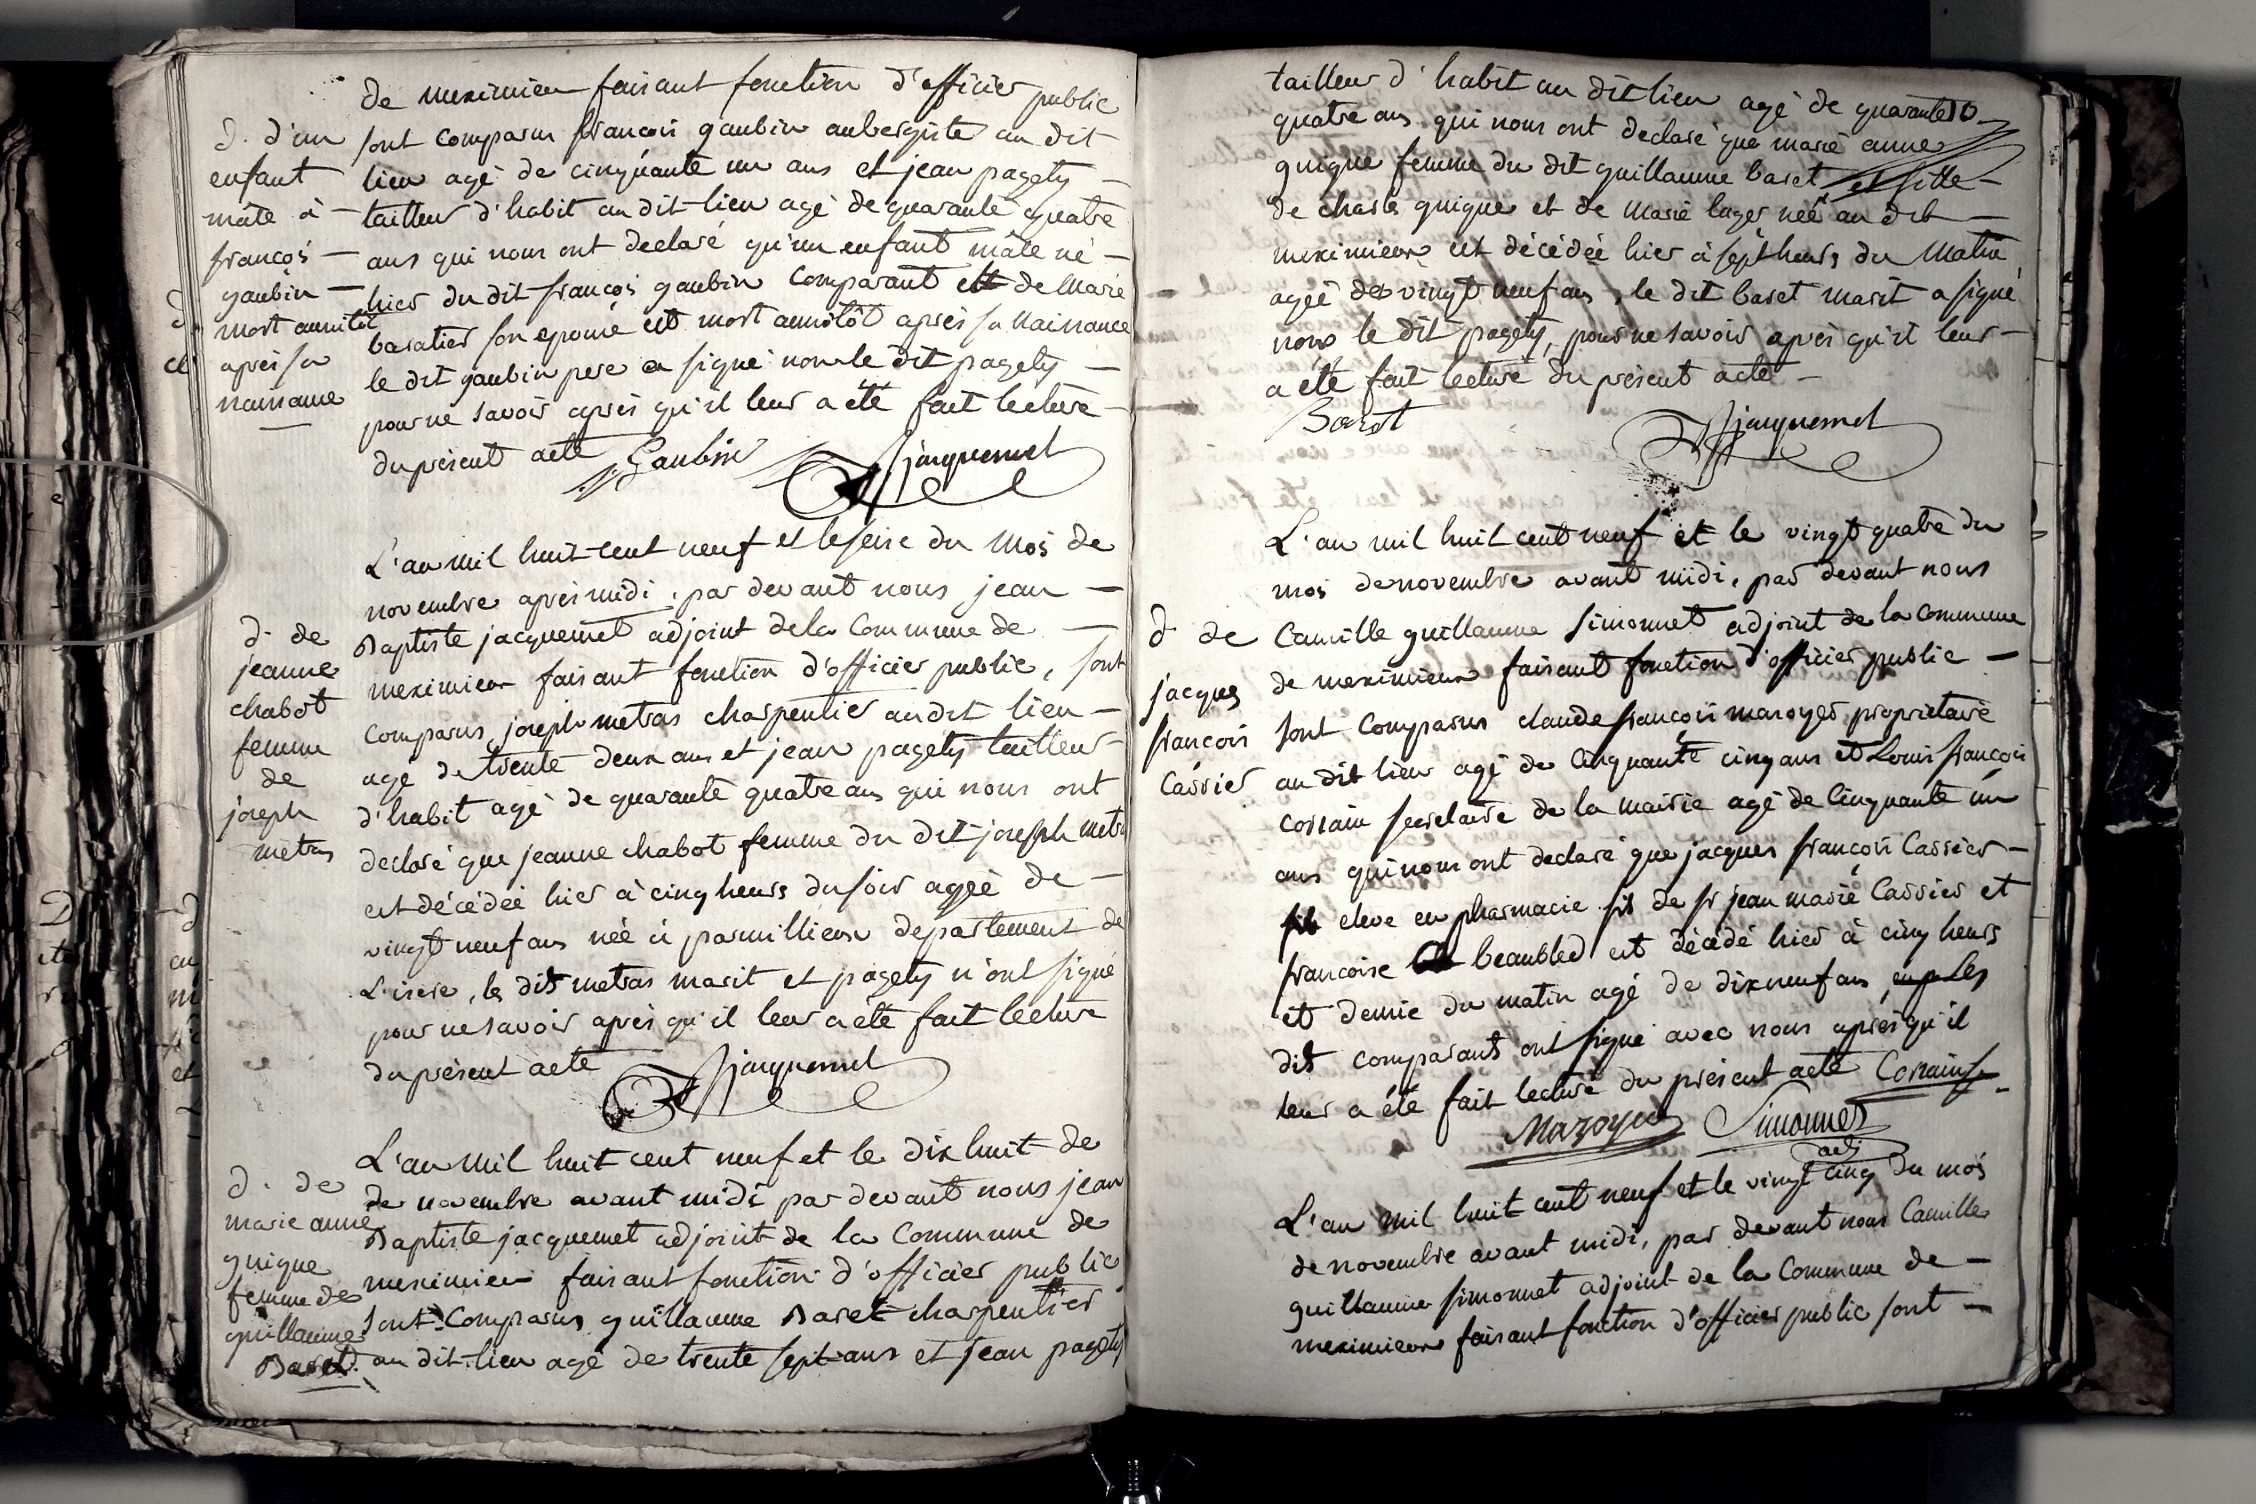 de meximieu faisant fonction d'officier public
d. d'un
enfant
mâle à
françois
gaubin
mort aussitôt
après sa
naissance
sont comparus françois gaubin aubergiste au dit
lieu agé de cinquante un ans et jean pagety
tailleur d'habit au dit lieu agé de quarante quatre
ans qui nous ont declaré qu'un enfant mâle né
hier du dit françois gaubin comparant et de Marie
basatier son epouse est mort aussitôt après sa Naissance
le dit gaubin pere a signé non le dit pagety
pour ne savoir après qu'il leur a été fait lecture
du présent acte Gaubin jacquemet
L'an mil huit cent neuf et le seise du mois de
novembre après midi, par devant nous jean
d. de
jeanne
chabot
femme
de
joseph
metras
Baptiste jacquemet adjoint de la Commune de
meximieu faisant fonction d'officier public, sont
comparus joseph metras charpentier au dit lieu
agé de trente deux ans et jean pagety tailleur
d'habit agé de quarante quatre ans qui nous ont
declaré que jeanne chabot femme du dit joseph metras
est décédée hier à cinq heures du soir agée de
vingt neuf ans née à parmillieu departement de
L'isere, les dits metras marit et pagety n'ont signé
pour ne savoir après qu'il leur a été fait lecture
du présent acte jacquemet
L'an Mil huit cent neuf et le dix huit de
d. de
marie anne
guigue
femme de
guillaume
Baret
de novembre avant midi par devant nous jean
Baptiste jacquemet adjoint de la Commune de
meximieu faisant fonction d'officier public
sont Comparus guillaume Baret charpentier
au dit lieu agé de trente sept ans et jean pagety
tailleur d'habit au dit lieu agé de quarante
quatre ans qui nous ont declaré que marie anne
guigue femme du dit guillaume baret et fille
de charles guigue et de Marie luger née au dit
meximieu est décédée hier à sept heures du Matin
agée de vingt neuf ans, le dit baret marit a signé
non le dit pagety, pour ne savoir après qu'il leur
a été fait lecture du présent acte
Baret jacquemet
L'an mil huit cent neuf et le vingt quatre du
mois de novembre avant midi, par devant nous
d de
jacques
françois
Cassier
Camille guillaume simonnet adjoint de la commune
de meximieux faisant fonction d'officier public
sont Comparus claude françois mazoyer proprietaire
au dit lieu agé de Cinquante cinq ans et Louis françois
corsain secretaire de la mairie agé de Cinquante un
ans qui nous ont declaré que jacques françois Cassier
fils eleve en pharmacie fils de sr jean marie Cassier et
francoise beaubled est décédé hier à cinq heures
et demie du matin agé de dix neuf ans, Les
dits comparants ont signé avec nous après qu'il
leur a été fait lecture du présent acte Corsain
Mazoyer Simonnet
adj
L'an mil huit cent neuf et le vingt cinq du mois
de novembre avant midi, par devant nous Camille
guillaume simonnet adjoint de la Commune de
meximieux faisant fonction d'officier public sont